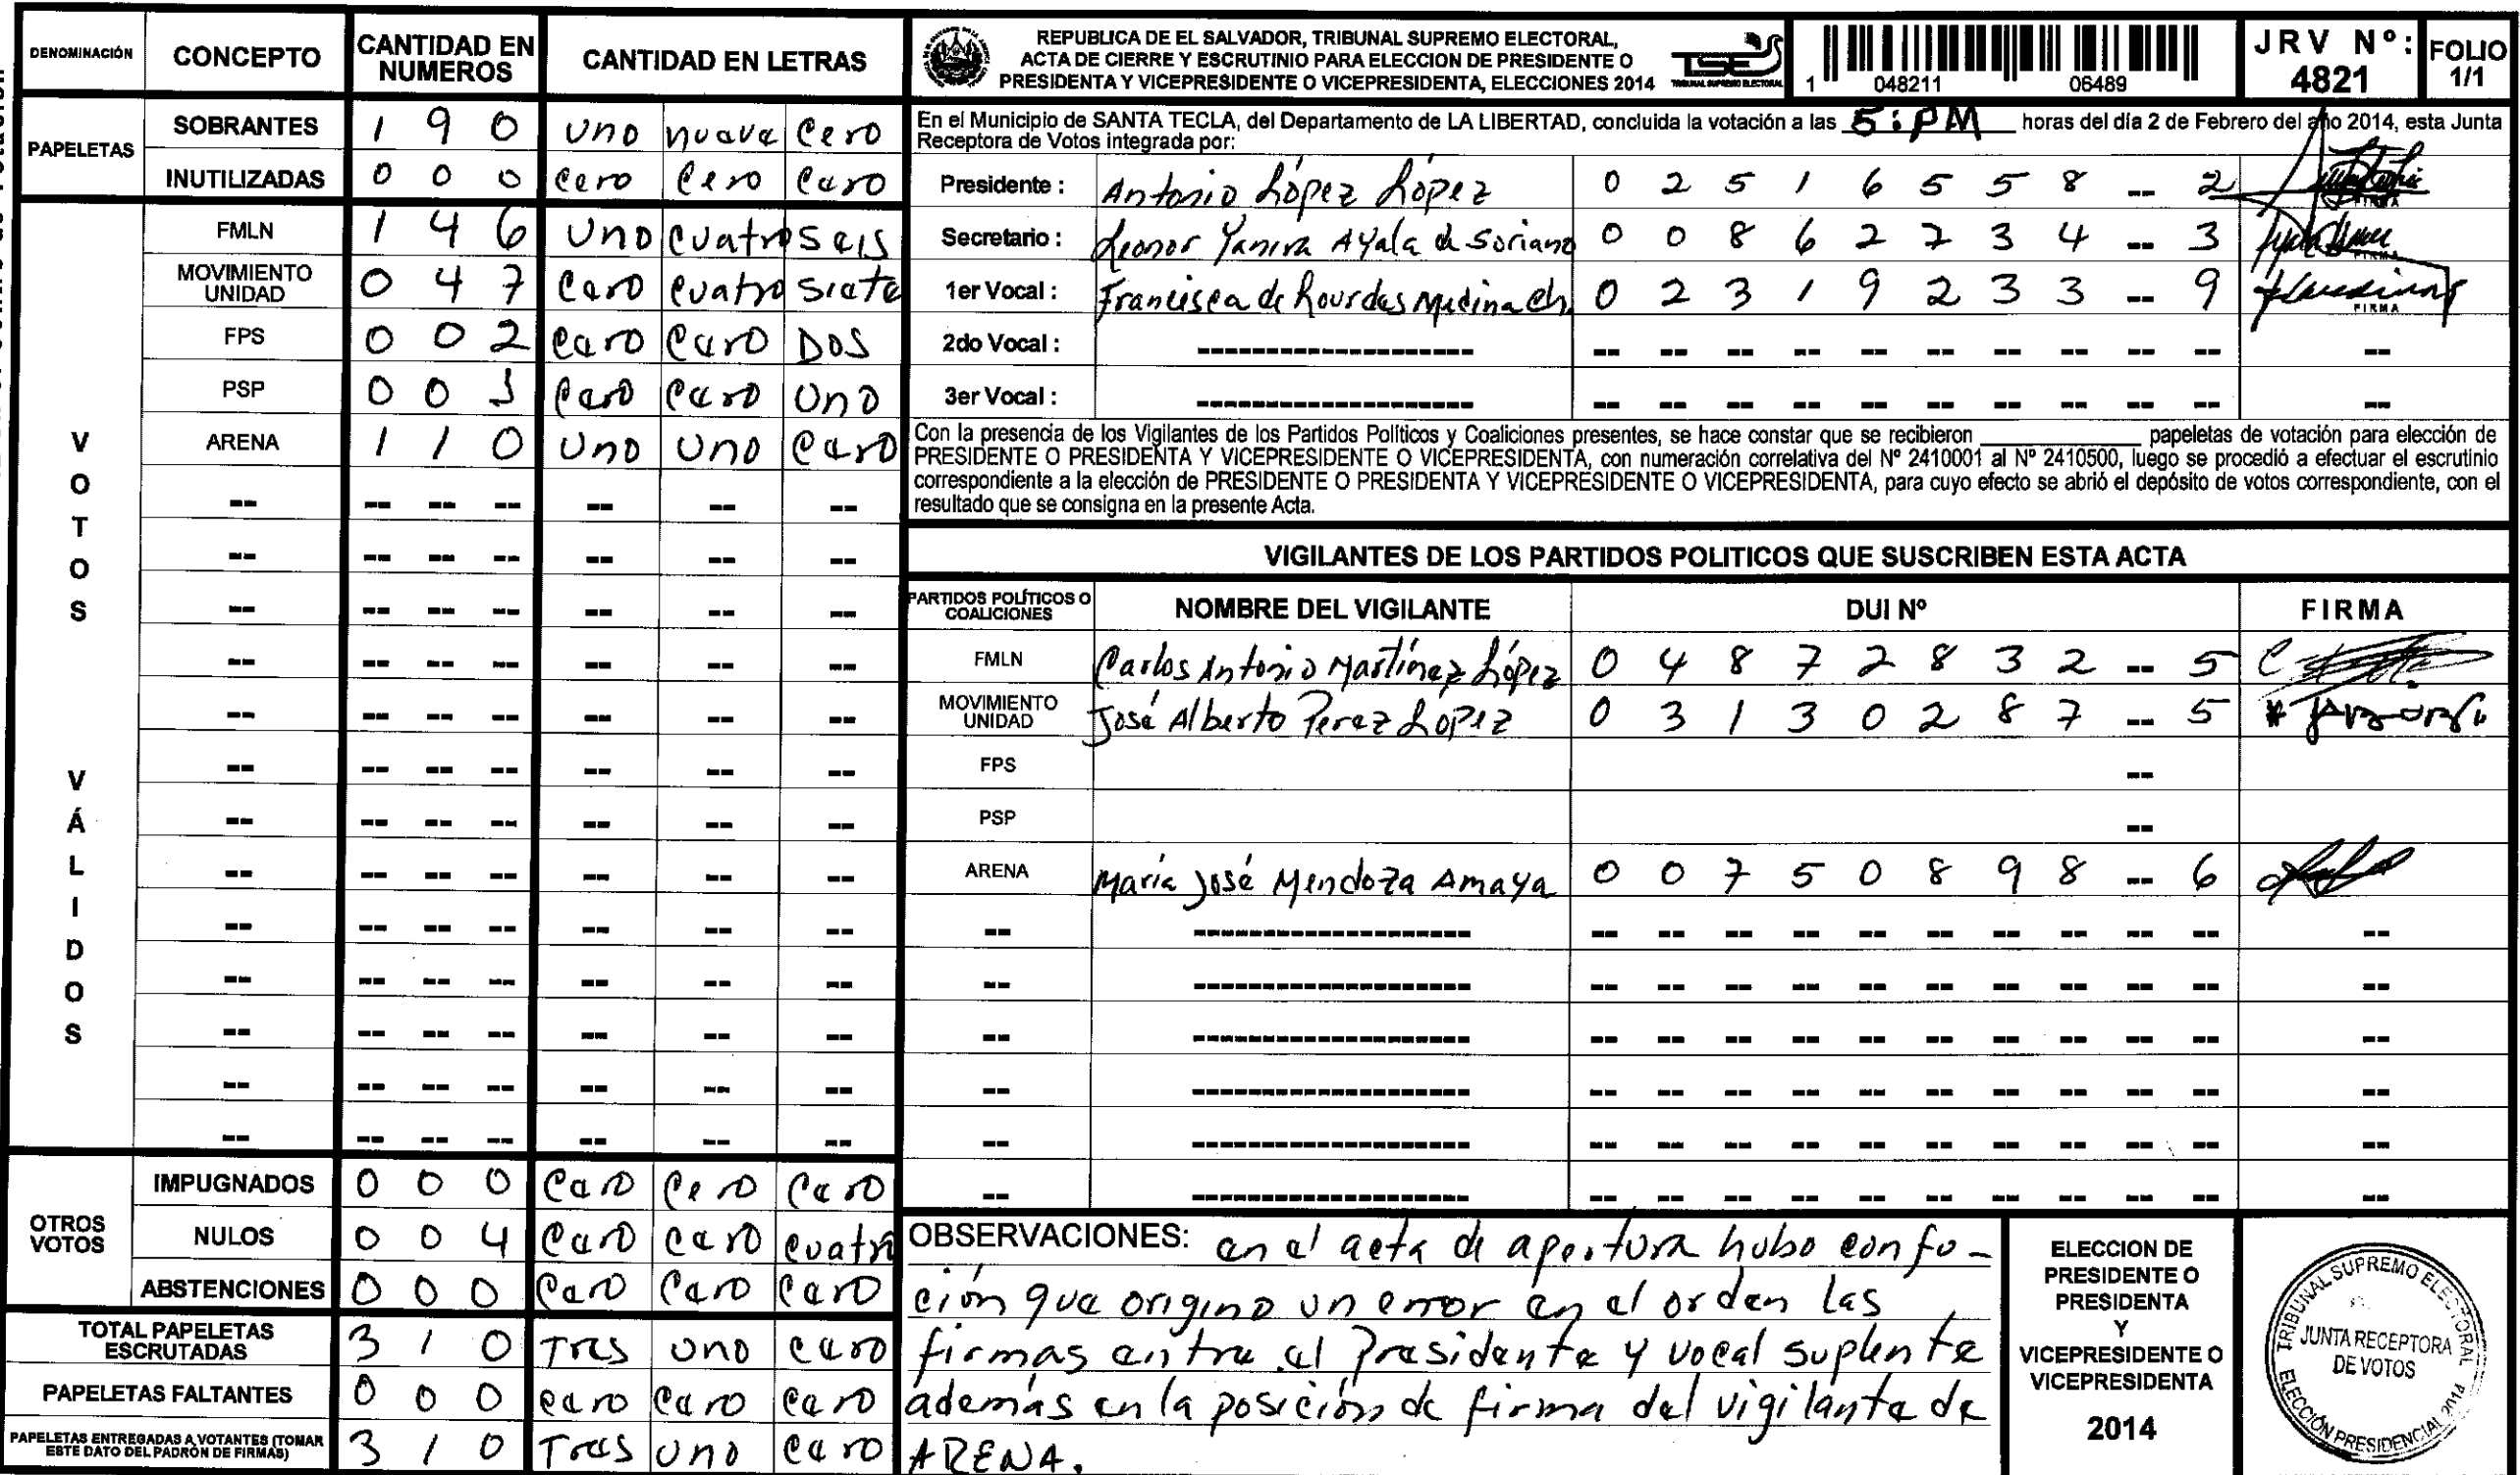 DENOMINACIÓN CONCEPTO CANTIDAD EN NUMEROS CANTIDAD EN LETRAS
PAPELETAS
SOBRANTES 1 9 0 uno nueve cero
INUTILIZADAS 0 0 0 cero cero cero
VOTOS VÁLIDOS
FMLN 1 4 6 uno cuatro seis
MOVIMIENTO UNIDAD 0 4 7 cero cuatro siete
FPS 0 0 2 cero cero DOS
PSP 0 0 1 cero cero uno
ARENA 1 1 0 uno uno cero
-- -- -- -- -- -- --
-- -- -- -- -- -- --
-- -- -- -- -- -- --
-- -- -- -- -- -- --
-- -- -- -- -- -- --
-- -- -- -- -- -- --
-- -- -- -- -- -- --
-- -- -- -- -- -- --
-- -- -- -- -- -- --
-- -- -- -- -- -- --
-- -- -- -- -- -- --
-- -- -- -- -- -- --
-- -- -- -- -- -- --
OTROS VOTOS
IMPUGNADOS 0 0 0 cero cero cero
NULOS 0 0 4 cero cero cuatro
ABSTENCIONES 0 0 0 cero cero cero
TOTAL PAPELETAS ESCRUTADAS 3 1 0 Tres uno cero
PAPELETAS FALTANTES 0 0 0 cero cero cero
PAPELETAS ENTREGADAS A VOTANTES (TOMAR ESTE DATO DEL PADRÓN DE FIRMAS) 3 1 0 Tres uno cero
REPUBLICA DE EL SALVADOR, TRIBUNAL SUPREMO ELECTORAL,
ACTA DE CIERRE Y ESCRUTINIO PARA ELECCION DE PRESIDENTE O
PRESIDENTA Y VICEPRESIDENTE O VICEPRESIDENTA, ELECCIONES 2014
TSE
TRIBUNAL SUPREMO ELECTORAL
1 048211 06489
JRV Nº: 4821
FOLIO 1/1
En el Municipio de SANTA TECLA, del Departamento de LA LIBERTAD, concluida la votación a las 5:PM horas del día 2 de Febrero del año 2014, esta Junta
Receptora de Votos integrada por:
Presidente : Antonio López López 0 2 5 1 6 5 5 8 -- 2 FIRMA
Secretario : Leonor Yanira Ayala de Soriano 0 0 8 6 2 2 3 4 -- 3 FIRMA
1er Vocal : Francisca de Lourdes Medina Ch. 0 2 3 1 9 2 3 3 -- 9 FIRMA
2do Vocal : -------------------- -- -- -- -- -- -- -- -- -- -- --
3er Vocal : -------------------- -- -- -- -- -- -- -- -- -- -- --
Con la presencia de los Vigilantes de los Partidos Políticos y Coaliciones presentes, se hace constar que se recibieron __________ papeletas de votación para elección de
PRESIDENTE O PRESIDENTA Y VICEPRESIDENTE O VICEPRESIDENTA, con numeración correlativa del Nº 2410001 al Nº 2410500, luego se procedió a efectuar el escrutinio
correspondiente a la elección de PRESIDENTE O PRESIDENTA Y VICEPRESIDENTE O VICEPRESIDENTA, para cuyo efecto se abrió el depósito de votos correspondiente, con el
resultado que se consigna en la presente Acta.
VIGILANTES DE LOS PARTIDOS POLITICOS QUE SUSCRIBEN ESTA ACTA
PARTIDOS POLÍTICOS O COALICIONES NOMBRE DEL VIGILANTE DUI Nº FIRMA
FMLN Carlos Antonio Martínez López 0 4 8 7 2 8 3 2 -- 5
MOVIMIENTO UNIDAD José Alberto Perez López 0 3 1 3 0 2 8 7 -- 5
FPS --
PSP --
ARENA María José Mendoza Amaya 0 0 7 5 0 8 9 8 -- 6
-- -------------------- -- -- -- -- -- -- -- -- -- -- --
-- -------------------- -- -- -- -- -- -- -- -- -- -- --
-- -------------------- -- -- -- -- -- -- -- -- -- -- --
-- -------------------- -- -- -- -- -- -- -- -- -- -- --
-- -------------------- -- -- -- -- -- -- -- -- -- -- --
-- -------------------- -- -- -- -- -- -- -- -- -- -- --
OBSERVACIONES: en el acta de apertura hubo confu-
ción que origino un error en el orden las
firmas entre el Presidente y vocal suplente
además en la posición de firma del vigilante de
ARENA.
ELECCION DE
PRESIDENTE O
PRESIDENTA
Y
VICEPRESIDENTE O
VICEPRESIDENTA
2014
TRIBUNAL SUPREMO ELECTORAL
JUNTA RECEPTORA
DE VOTOS
ELECCIÓN PRESIDENCIAL 2014